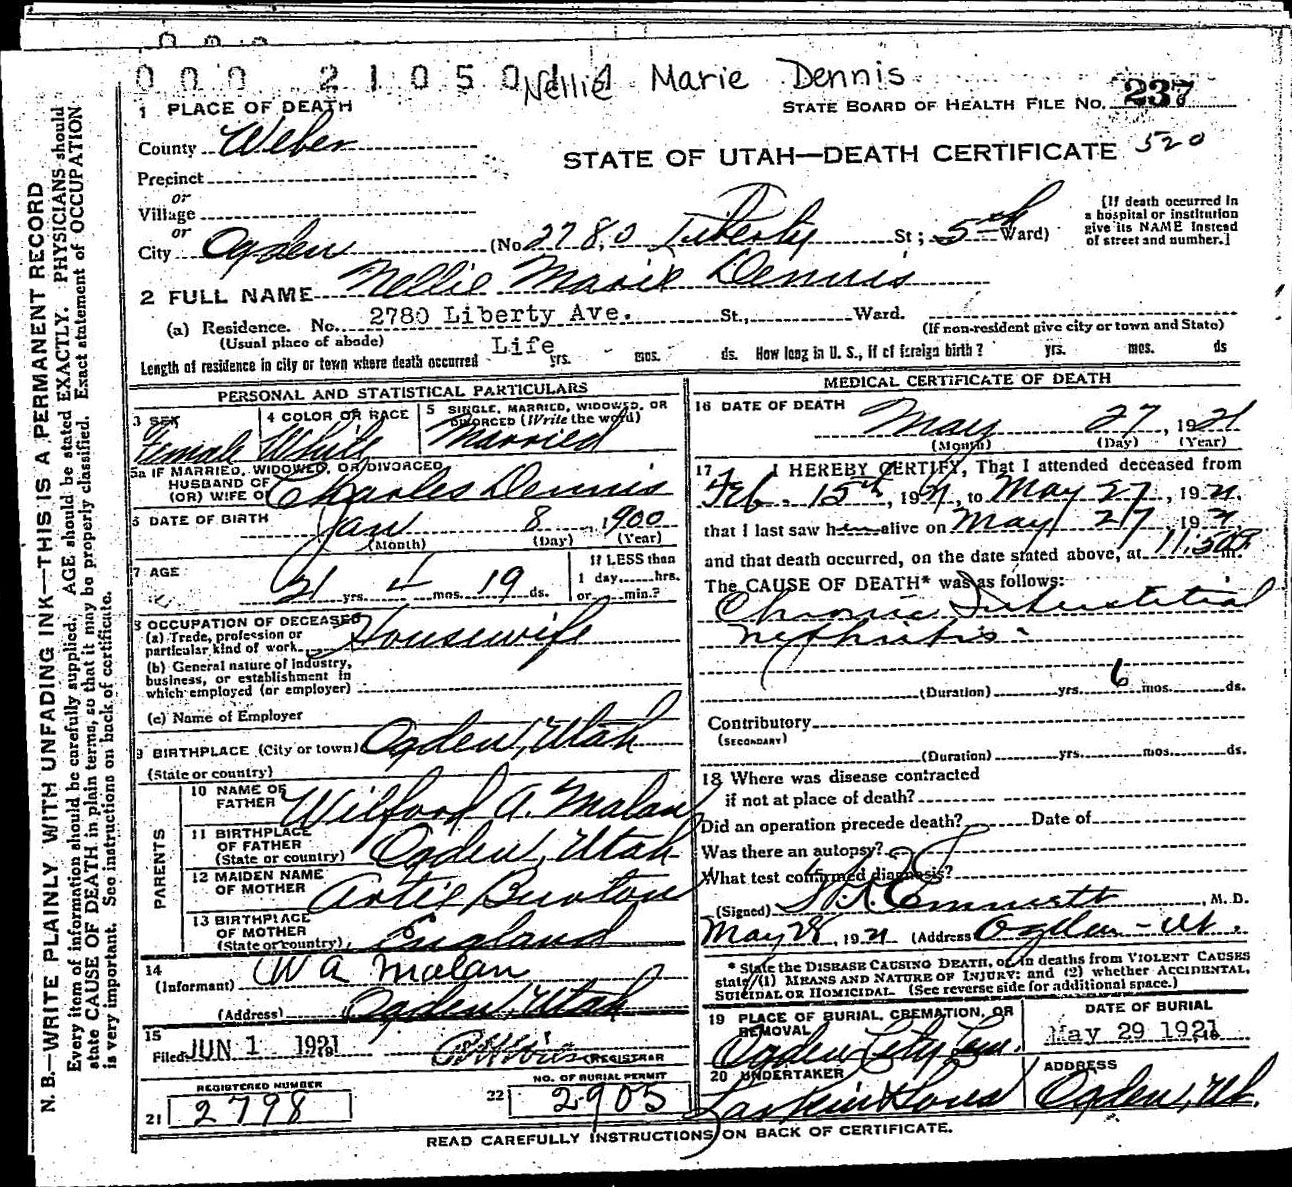 Nellie Marie Dennis
STATE BOARD OF HEALTH FILE NO. 237
1 PLACE OF DEATH
County Weber
STATE OF UTAH—DEATH CERTIFICATE 520
Precinct
or
Village
or
City Ogden (No 2780 Liberty St; 5th Ward)
[If death occurred in a hospital or institution give its NAME instead of street and number.]
2 FULL NAME Nellie Marie Dennis
(a) Residence. No. 2780 Liberty Ave. St., Ward.
(Usual place of abode) (If non-resident give city or town and State)
Length of residence in city or town where death occurred Life yrs. mos. ds. How long in U. S., if of foreign birth? yrs. mos. ds
PERSONAL AND STATISTICAL PARTICULARS
3 SEX Female
4 COLOR OR RACE White
5 SINGLE, MARRIED, WIDOWED, OR DIVORCED (Write the word) Married
5a IF MARRIED, WIDOWED, OR DIVORCED
HUSBAND OF
(OR) WIFE OF Charles Dennis
6 DATE OF BIRTH Jan 8, 1900
(Month) (Day) (Year)
7 AGE 21 yrs. 4 mos. 19 ds.
If LESS than
1 day,......hrs.
or......min.?
8 OCCUPATION OF DECEASED
(a) Trade, profession or
particular kind of work Housewife
(b) General nature of Industry,
business, or establishment in
which employed (or employer)
(c) Name of Employer
9 BIRTHPLACE (City or town) Ogden, Utah
(State or country)
PARENTS
10 NAME OF
FATHER Wilford A. Malan
11 BIRTHPLACE
OF FATHER
(State or country) Ogden, Utah
12 MAIDEN NAME
OF MOTHER Artie Burton
13 BIRTHPLACE
OF MOTHER
(State or country) England
14
(Informant) W A Malan
(Address) Ogden, Utah
15
Filed JUN 1 1921
REGISTRAR
REGISTERED NUMBER
21 2798
NO. OF BURIAL PERMIT
22 2905
MEDICAL CERTIFICATE OF DEATH
16 DATE OF DEATH
May 27, 1921
(Month) (Day) (Year)
17 I HEREBY CERTIFY, That I attended deceased from
Feb. 15th, 1921, to May 27, 1921.
that I last saw h alive on May 27, 1921
and that death occurred, on the date stated above, at 11:50 P. m.
The CAUSE OF DEATH* was as follows:
Chronic Interstitial
nephritis
(Duration) yrs. 6 mos. ds.
Contributory
(SECONDARY)
(Duration) yrs. mos. ds.
18 Where was disease contracted
if not at place of death?
Did an operation precede death? Date of
Was there an autopsy?
What test confirmed diagnosis?
(Signed) Emmett, M. D.
May 28, 1921 (Address Ogden - Ut.
* State the DISEASE CAUSING DEATH, or, in deaths from VIOLENT CAUSES
state (1) MEANS AND NATURE OF INJURY; and (2) whether ACCIDENTAL,
SUICIDAL OR HOMICIDAL. (See reverse side for additional space.)
19 PLACE OF BURIAL, CREMATION, OR
REMOVAL
Ogden City Cem.
DATE OF BURIAL
May 29 1921
20 UNDERTAKER
Larkin & Sons
ADDRESS
Ogden, Ut.
READ CAREFULLY INSTRUCTIONS ON BACK OF CERTIFICATE.
N. B.—WRITE PLAINLY WITH UNFADING INK—THIS IS A PERMANENT RECORD
Every item of information should be carefully supplied. AGE should be stated EXACTLY. PHYSICIANS should
state CAUSE OF DEATH in plain terms, so that it may be properly classified. Exact statement of OCCUPATION
is very important. See instructions on back of certificate.